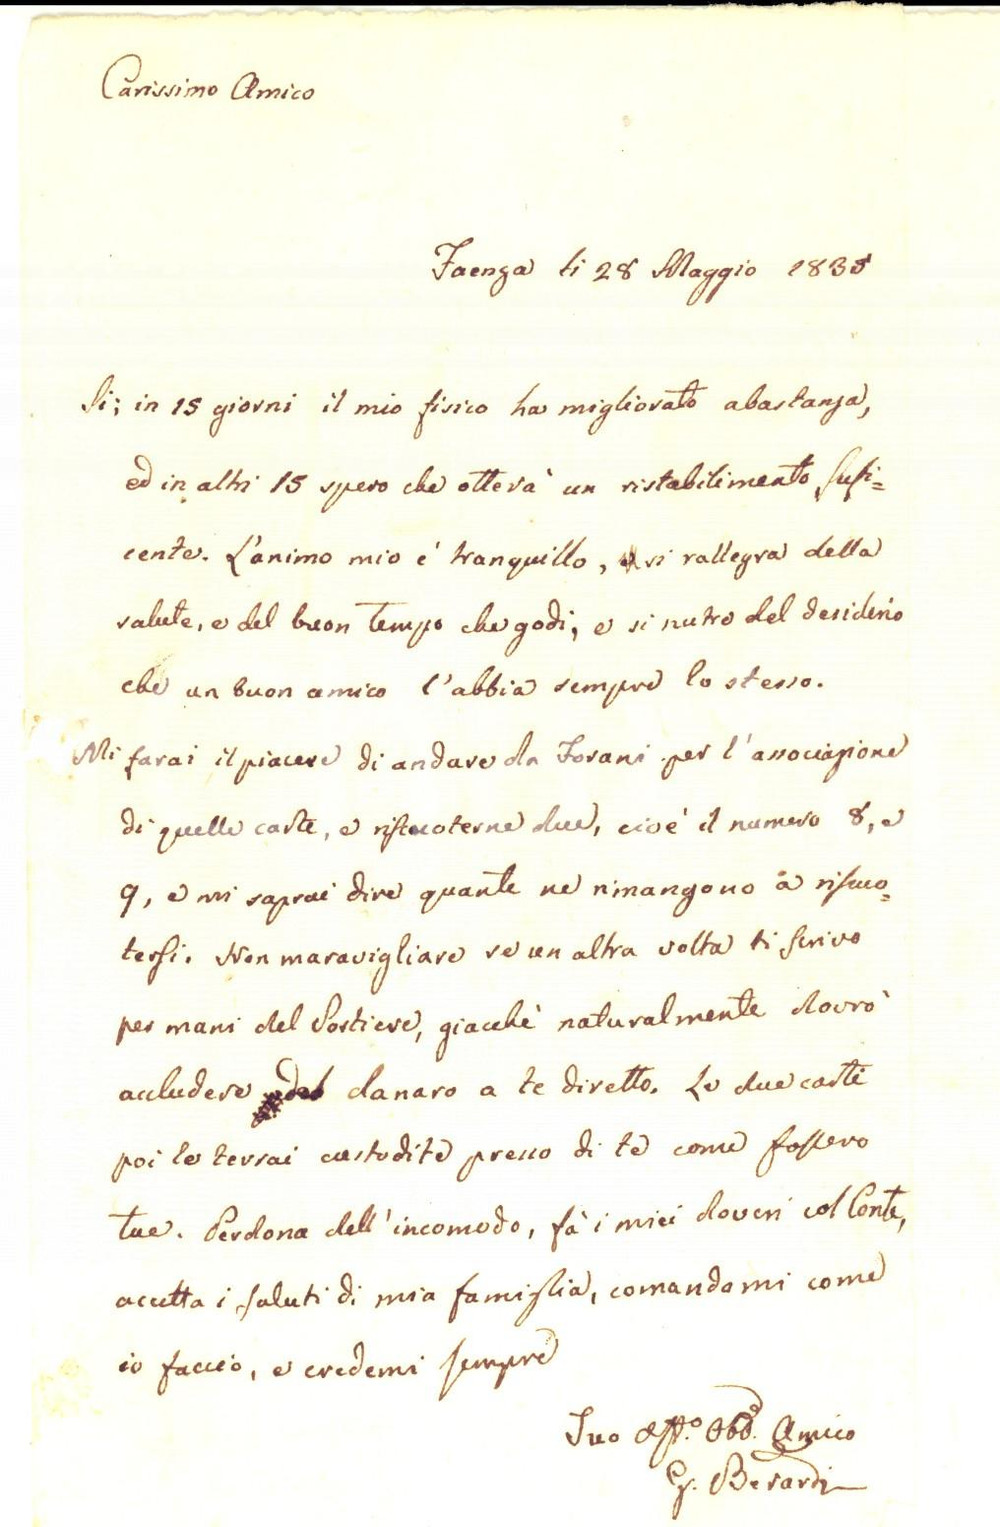 Carissimo Amico
Faenza li 28 Maggio 1835
Si; in 15 giorni il mio fisico ha migliorato abastanza,
ed in altri 15 spero che otterà un ristabilimento sufi=
cente. L'animo mio è tranquillo, si rallegra della
salute, e del buon tempo che godi; e si nutre del desiderio
che un buon amico l'abbia sempre lo stesso.
Mi farai il piacere di andare da Forani per l'associazione
di quelle carte, e riscuoterne due, cioè il numero 8, e
9, e mi saprai dire quante ne rimangono à riscuo=
tersi. Non maravigliare se un altra volta ti scrivo
per mani del Postiere, giacchè naturalmente dovrò
accludere del danaro a te diretto. Le due carte
poi le terrai custodite presso di te come fossero
tue. Perdona dell'incomodo, fà i miei doveri col Conte,
accetta i saluti di mia famiglia, comandami come
io faccio, e credemi sempre
Tuo Aff.o Obb. Amico
G. Berardi